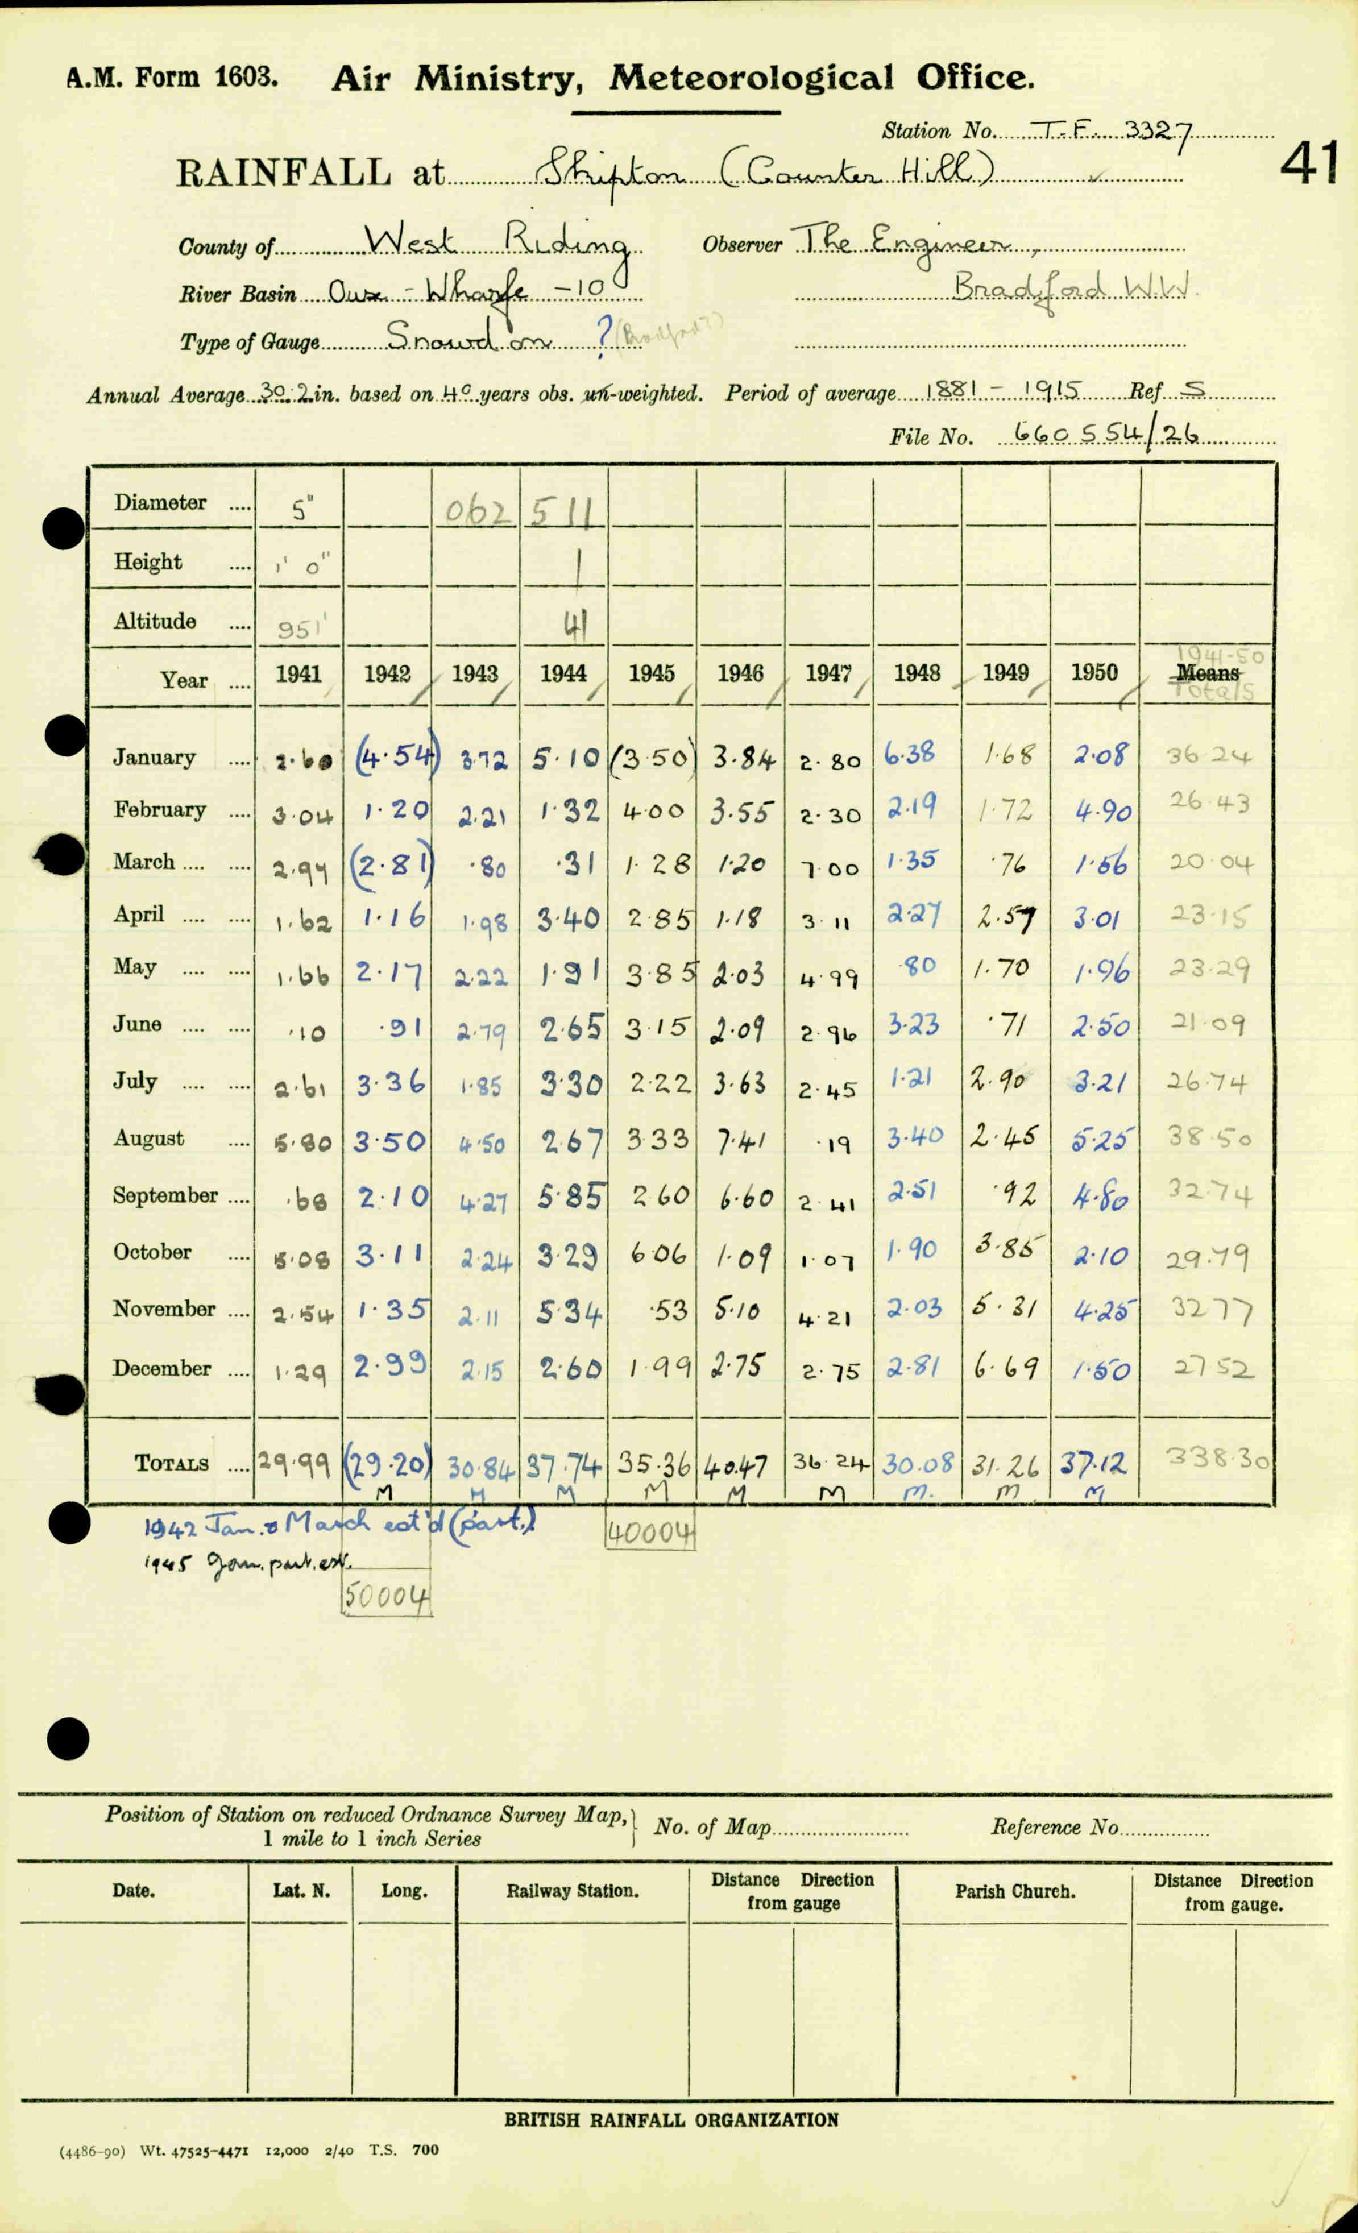 A.M. Form 1603. Air Ministry, Meteorological Office.
Station No. T.F. 3327
41
RAINFALL at Shipton (Counter Hill) ✓
County of West Riding Observer The Engineer,
River Basin Ouse - Wharfe - 10 Bradford W.W.
Type of Gauge Snowdon ? (Bradford?)
Annual Average 30.2 in. based on 40 years obs. un-weighted. Period of average 1881 - 1915 Ref. S
File No. 660554/26
Diameter .... 5" 062 511
Height .... 1' 0" 1
Altitude .... 951' 41
Year .... 1941 1942 1943 1944 1945 1946 1947 1948 1949 1950 Means 1941-50 Totals
January .... 2.60 (4.54) 3.72 5.10 (3.50) 3.84 2.80 6.38 1.68 2.08 36.24
February .... 3.04 1.20 2.21 1.32 4.00 3.55 2.30 2.19 1.72 4.90 26.43
March .... .... 2.97 (2.81) .80 .31 1.28 1.20 7.00 1.35 .76 1.56 20.04
April .... .... 1.62 1.16 1.98 3.40 2.85 1.18 3.11 2.27 2.57 3.01 23.15
May .... .... 1.66 2.17 2.22 1.91 3.85 2.03 4.99 .80 1.70 1.96 23.29
June .... .... .10 .91 2.79 2.65 3.15 2.09 2.96 3.23 .71 2.50 21.09
July .... .... 2.61 3.36 1.85 3.30 2.22 3.63 2.45 1.21 2.90 3.21 26.74
August .... 5.80 3.50 4.50 2.67 3.33 7.41 .19 3.40 2.45 5.25 38.50
September .... .68 2.10 4.27 5.85 2.60 6.60 2.41 2.51 .92 4.80 32.74
October .... 5.08 3.11 2.24 3.29 6.06 1.09 1.07 1.90 3.85 2.10 29.79
November .... 2.54 1.35 2.11 5.34 .53 5.10 4.21 2.03 5.31 4.25 32.77
December .... 1.29 2.99 2.15 2.60 1.99 2.75 2.75 2.81 6.69 1.50 27.52
TOTALS .... 29.99 (29.20) 30.84 37.74 35.36 40.47 36.24 30.08 31.26 37.12 338.30
M M M M M M M M M
1942 Jan. & March est'd (part.) 40004
1945 Jan. part. est.
50004
Position of Station on reduced Ordnance Survey Map, 1 mile to 1 inch Series } No. of Map Reference No.
Date. Lat. N. Long. Railway Station. Distance Direction from gauge Parish Church. Distance Direction from gauge.
BRITISH RAINFALL ORGANIZATION
(4486-90) Wt. 47525-4471 12,000 2/40 T.S. 700